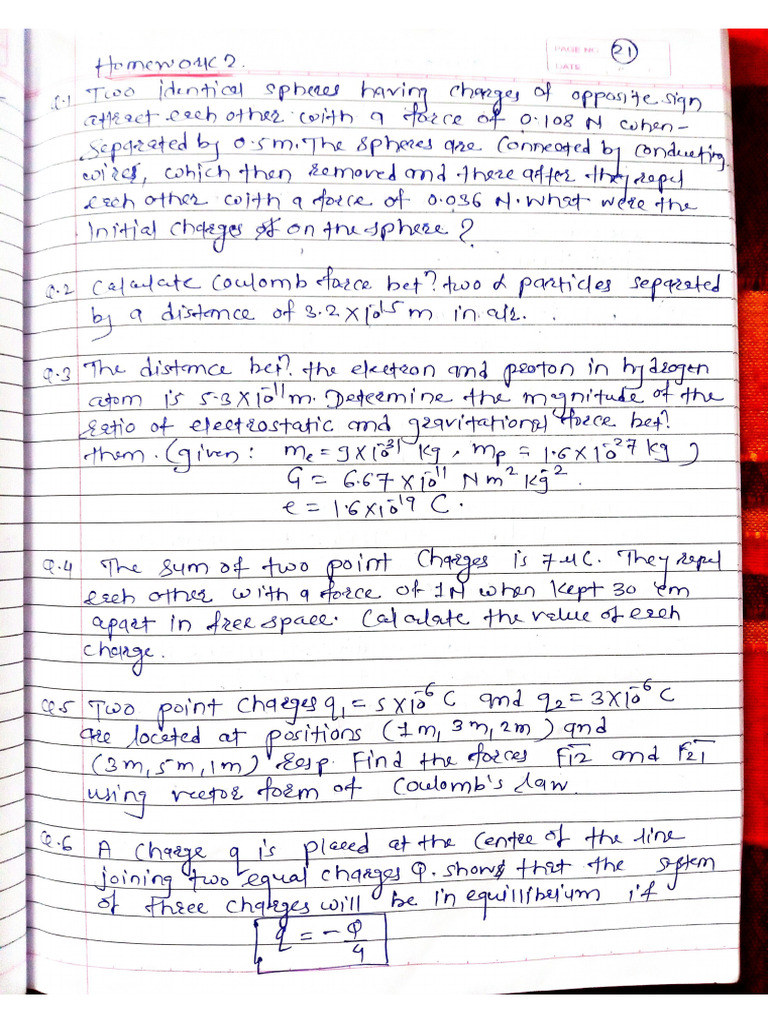 PAGE NO. 21
DATE
Homework 2.
Q.1 Two identical spheres having charges of opposite sign
attract each other with a force of 0.108 N when-
separated by 0.5 m. The spheres are connected by conducting
wires, which then removed and there after they repel
each other with a force of 0.036 N. What were the
initial charges of on the sphere?
Q.2 Calculate Coulomb force betⁿ. two α particles separated
by a distance of 3.2 × 10⁻¹⁵ m in air.
Q.3 The distance betⁿ. the electron and proton in hydrogen
atom is 5.3 × 10⁻¹¹ m. Determine the magnitude of the
ratio of electrostatic and gravitational force betⁿ.
them. (given: mₑ = 9 × 10⁻³¹ kg, mₚ = 1.6 × 10⁻²⁷ kg)
G = 6.67 × 10⁻¹¹ N m² kg⁻².
e = 1.6 × 10⁻¹⁹ C.
Q.4 The sum of two point charges is 7 μC. They repel
each other with a force of 1N when kept 30 cm
apart in free space. Calculate the value of each
charge.
Q.5 Two point charges q₁ = 5 × 10⁻⁶ C and q₂ = 3 × 10⁻⁶ C
are located at positions (1m, 3m, 2m) and
(3m, 5m, 1m) resp. Find the forces F̅₁₂ and F̅₂₁
using vector form of Coulomb's law.
Q.6 A charge q is placed at the centre of the line
joining two equal charges Q. shows that the system
of three charges will be in equillibrium if
q = -Q/4